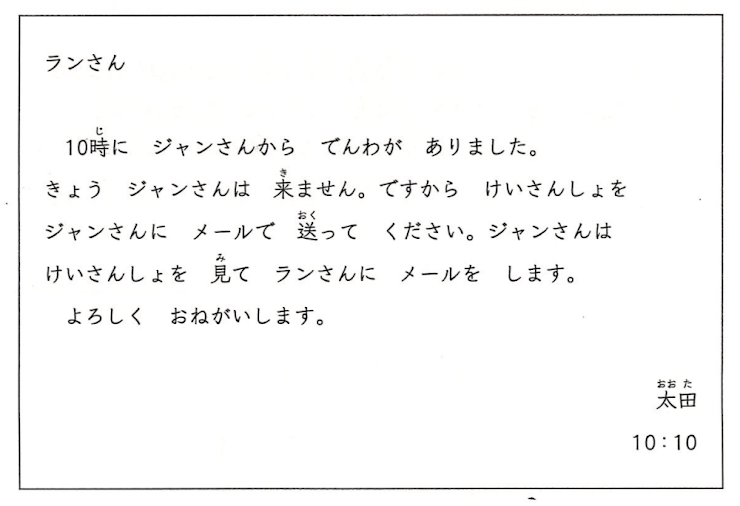 ランさん
10時に　ジャンさんから　でんわが　ありました。
きょう　ジャンさんは　来ません。ですから　けいさんしょを
ジャンさんに　メールで　送って　ください。ジャンさんは
けいさんしょを　見て　ランさんに　メールを　します。
よろしく　おねがいします。
太田
10：10